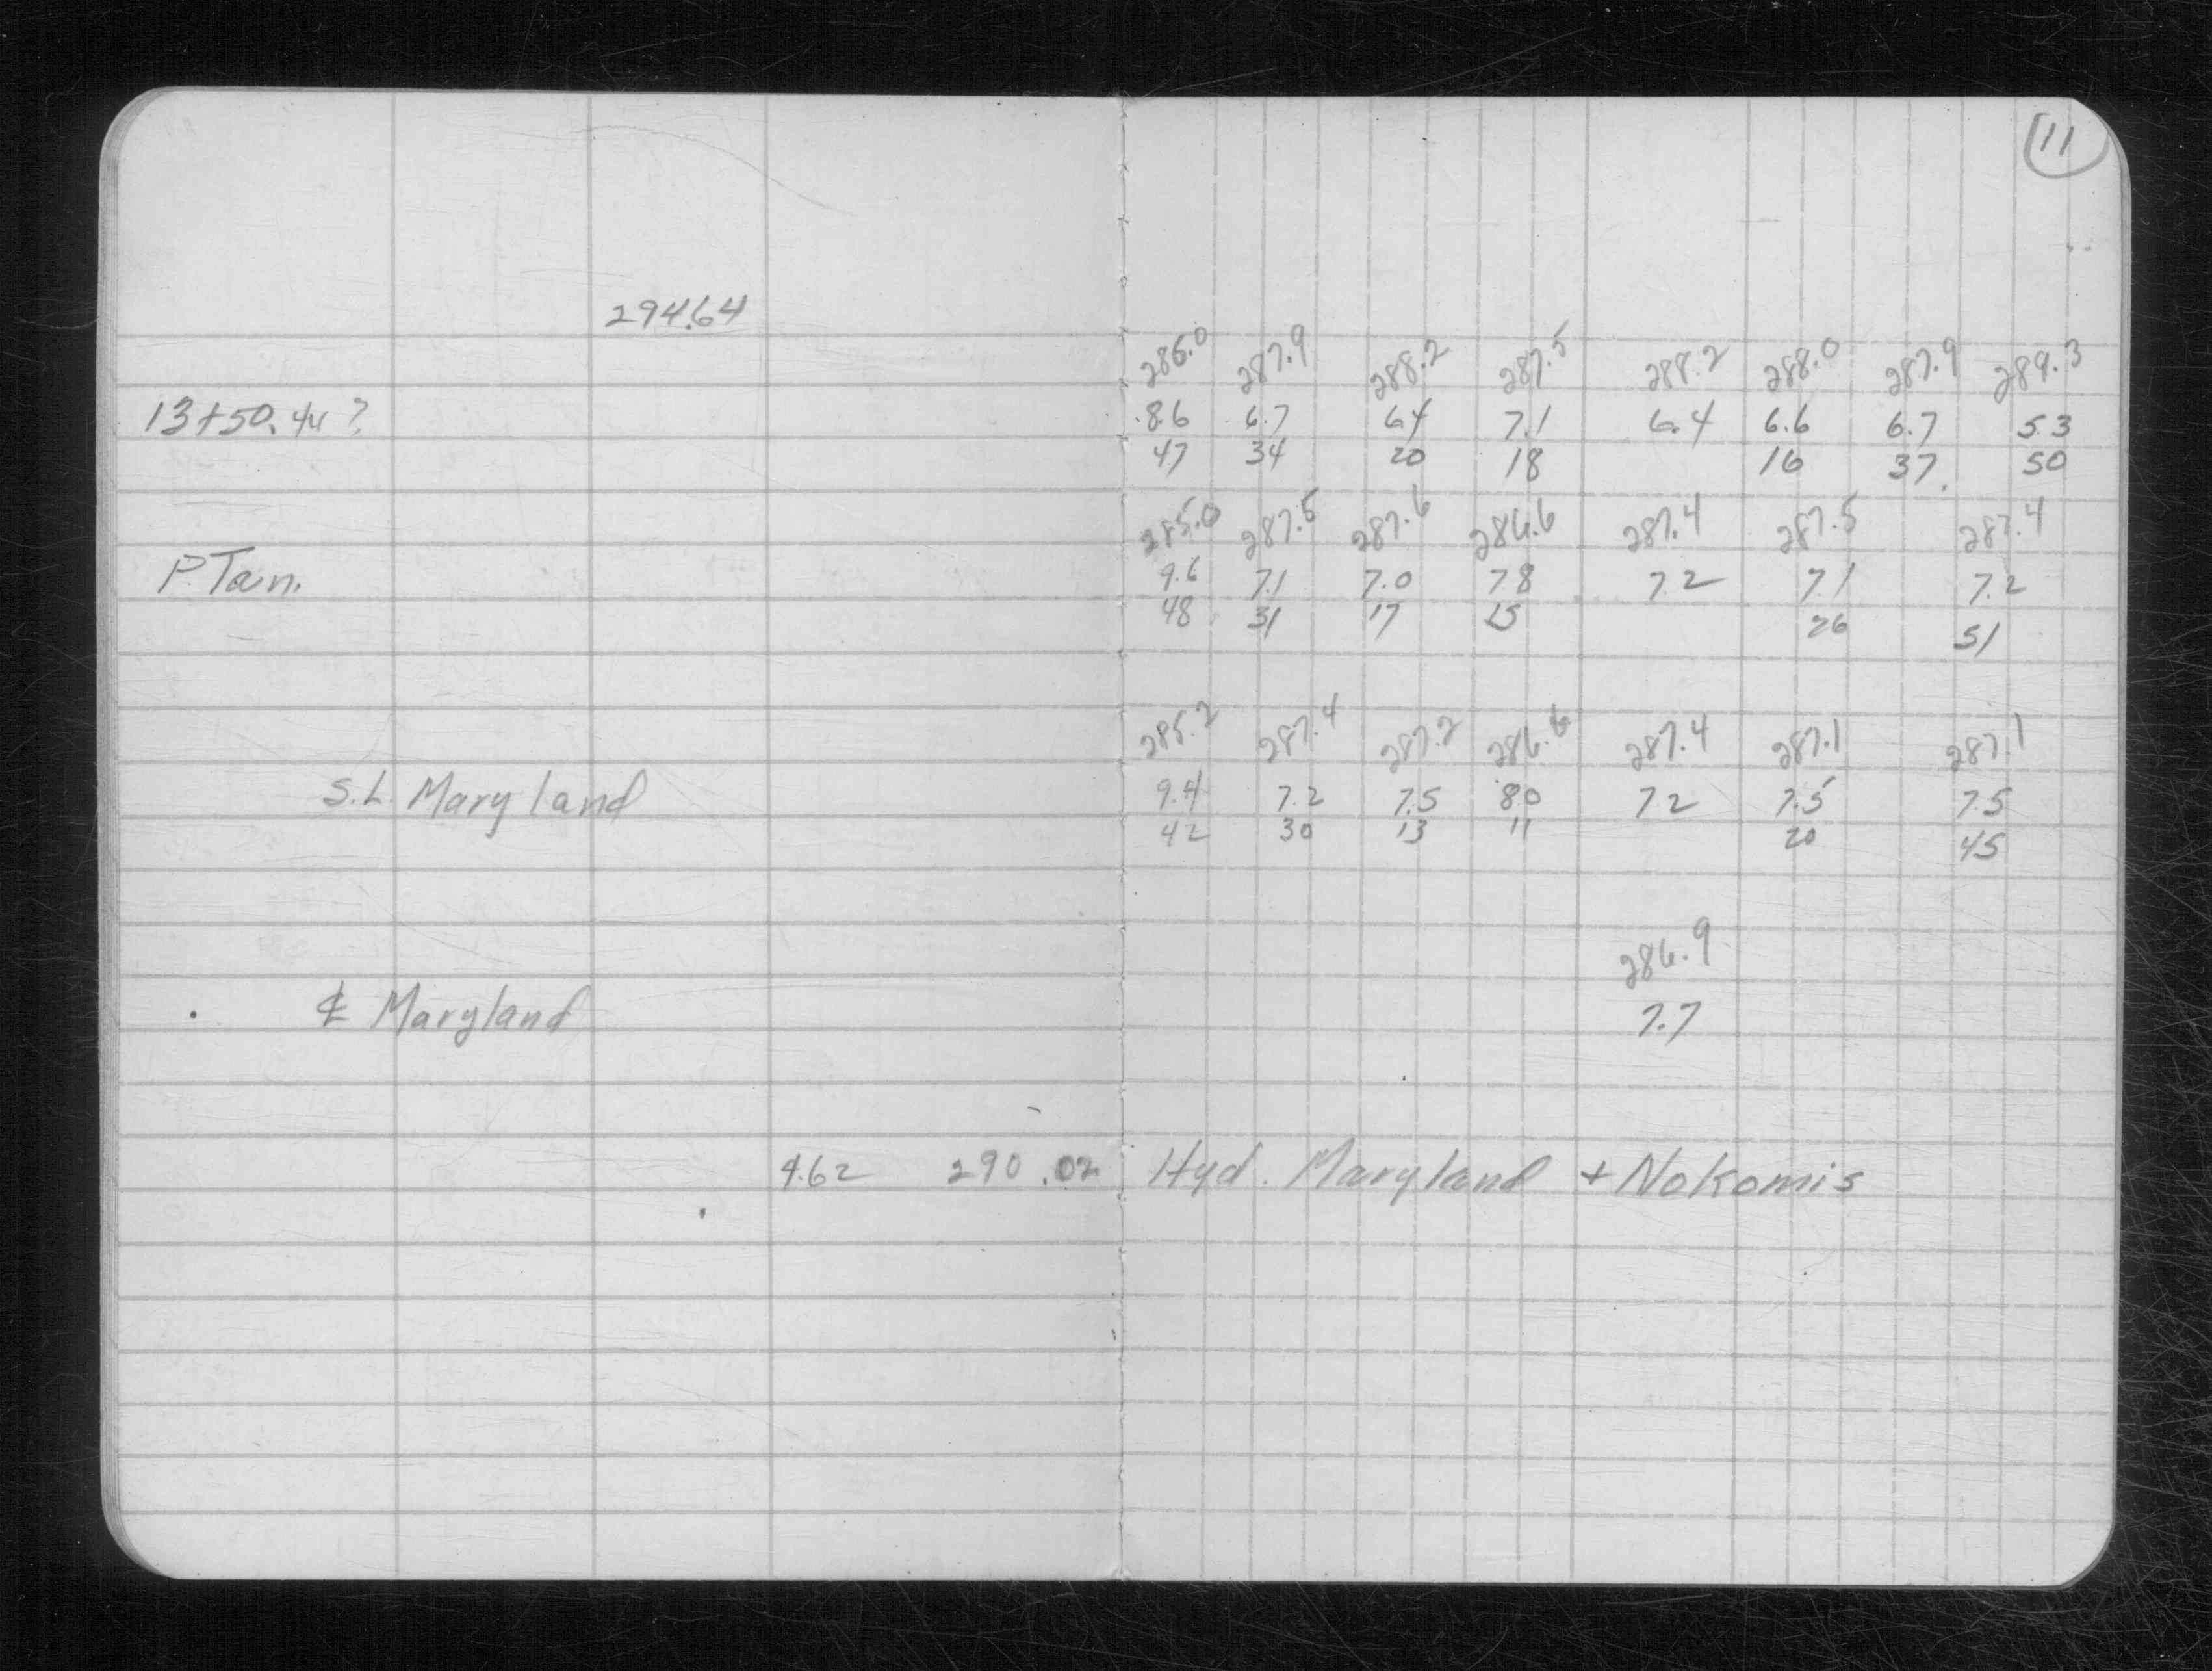 11
294.64
286.0 287.9 288.2 287.5 288.2 288.0 287.9 289.3
13+50.44? 8.6 6.7 6.4 7.1 6.4 6.6 6.7 5.3
47 34 20 18 16 37 50
285.0 287.5 287.6 286.6 287.4 287.5 287.4
P. Tan. 9.6 7.1 7.0 7.8 7.2 7.1 7.2
48 31 17 15 26 51
285.2 287.4 287.2 286.6 287.4 287.1 287.1
S.L. Maryland 9.4 7.2 7.5 80 7.2 7.5 7.5
42 30 13 11 20 45
286.9
℄ Maryland 7.7
4.62 290.02 Hyd. Maryland + Nokomis